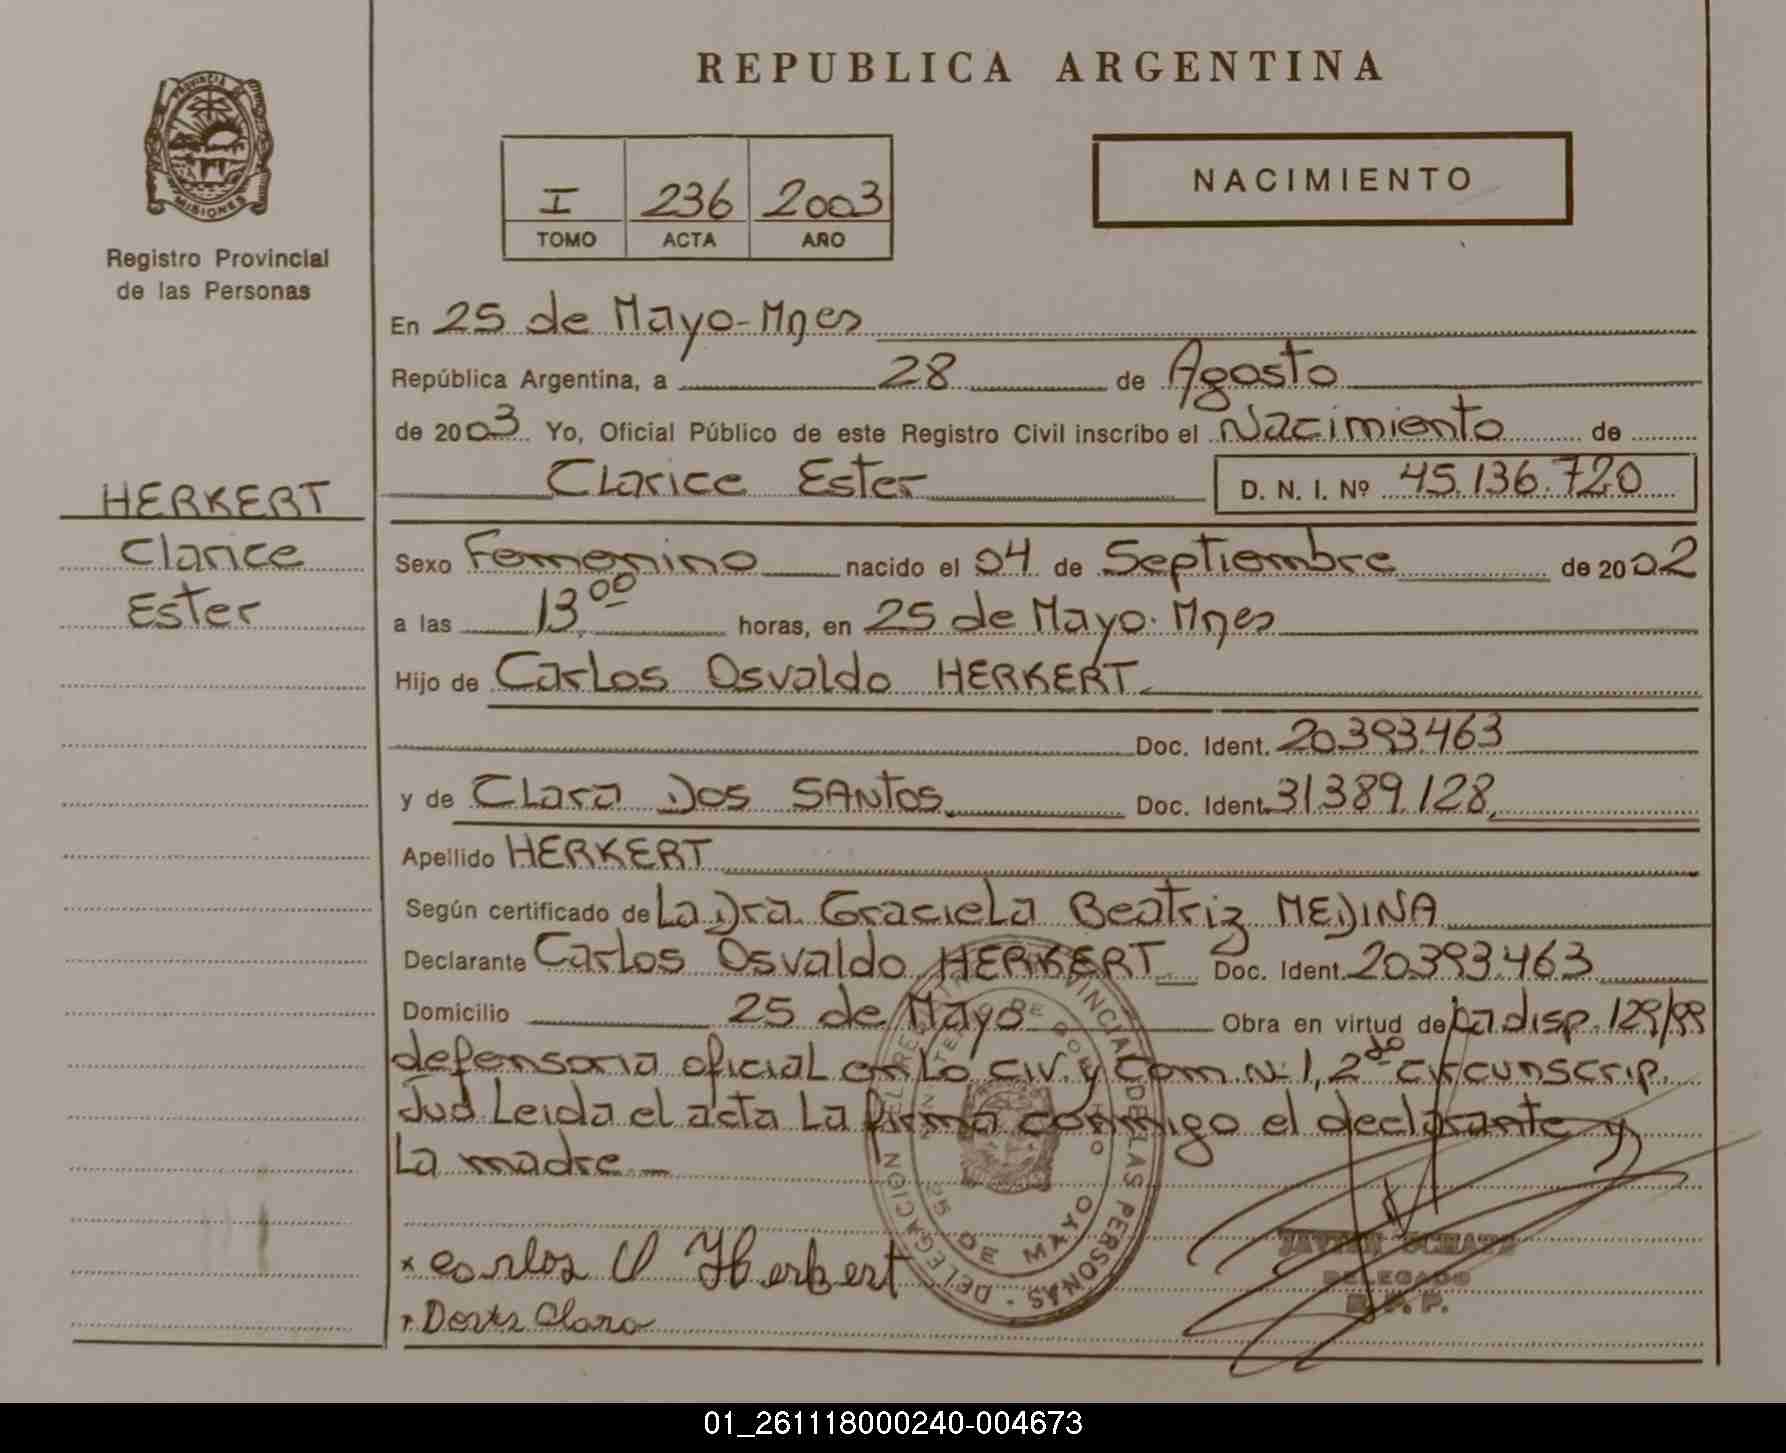 REPUBLICA ARGENTINA
PROVINCIA DE
MISIONES
Registro Provincial
de las Personas
NACIMIENTO
I 236 2003
TOMO ACTA AÑO
En 25 de Mayo-Mnes
República Argentina, a 28 de Agosto
de 2003 Yo, Oficial Público de este Registro Civil inscribo el Nacimiento de
Clarice Ester D. N. I. Nº 45.136.720
HERKERT
Clarice
Ester
Sexo Femenino nacido el 04 de Septiembre de 2002
a las 13.00 horas, en 25 de Mayo. Mnes
Hijo de Carlos Osvaldo HERKERT
Doc. Ident. 20.393.463
y de Clara Dos SANTOS Doc. Ident. 31.389.128
Apellido HERKERT
Según certificado de La Dra. Graciela Beatriz MEDINA
Declarante Carlos Osvaldo HERKERT Doc. Ident. 20.393.463
Domicilio 25 de Mayo Obra en virtud de la disp. 129/99
defensoria oficial en Lo Civ. y Com. N-1, 2da circunscrip.
Jud. Leida el acta La firma conmigo el declarante y
La madre
DELEGACION REGISTRO PROVINCIAL DE LAS PERSONAS
25 DE MAYO
Carlos O Herkert
Clara
DELEGADO
R. P. P.
01_261118000240-004673